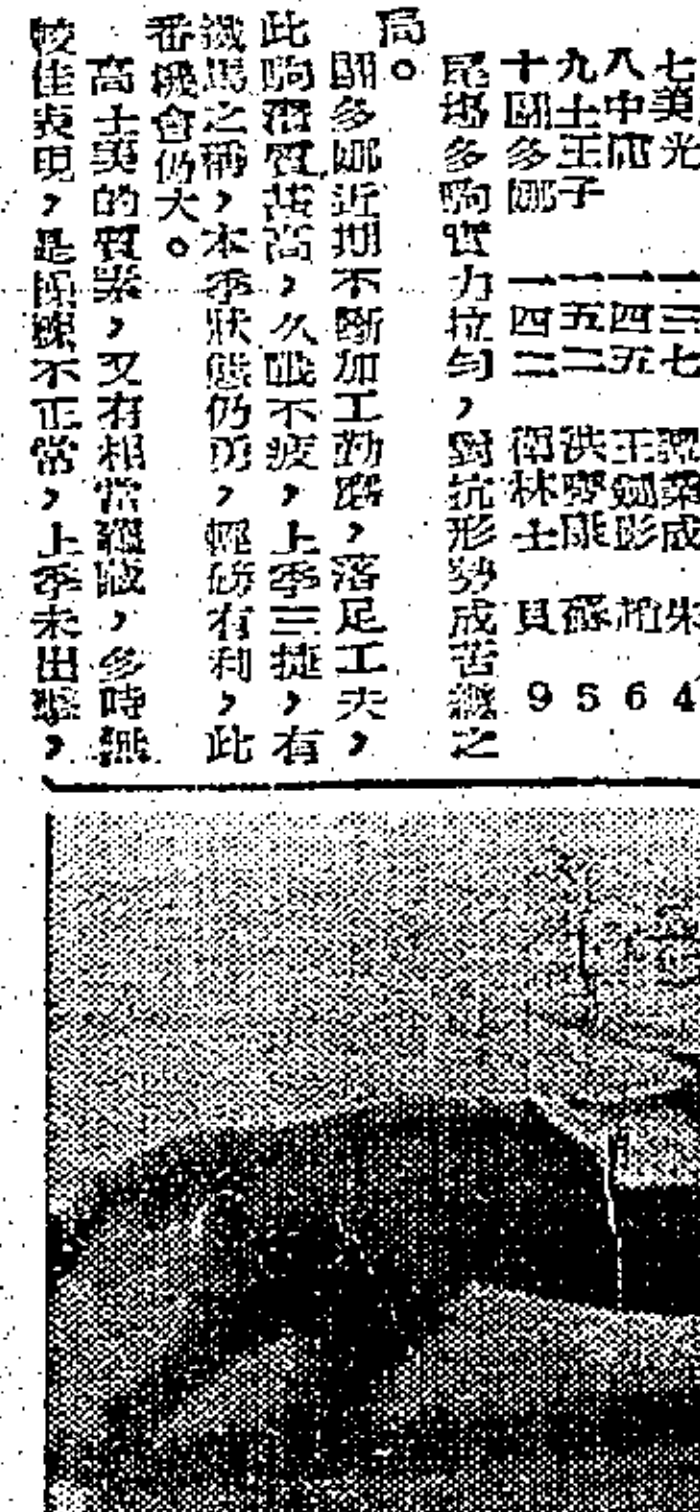 七美光 一三七 成 朱 4
八中 一四五 王劍影 趙 6
九士王子 一五二 洪 康 蘇 5
十關多娜 一四二 衛林士 貝 9
尾場多駒實力拉勻，對抗形勢成苦纏之
局。
關多娜近期不斷加工勤 ，落足工夫，
此駒 質甚高，久戰不疲，上季三捷，有
鐵馬之稱，本季狀態仍勇，輕磅有利，此
番機會仍大。
高士美的質素，又有相當 ，多時無
較佳表現，是操練不正常，上季未出擊，